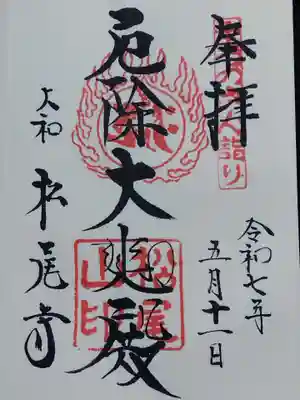 奉拝
令和七年
五月十一日
厄除大悲殿
大和 松尾寺
へ詣り
松尾
山印